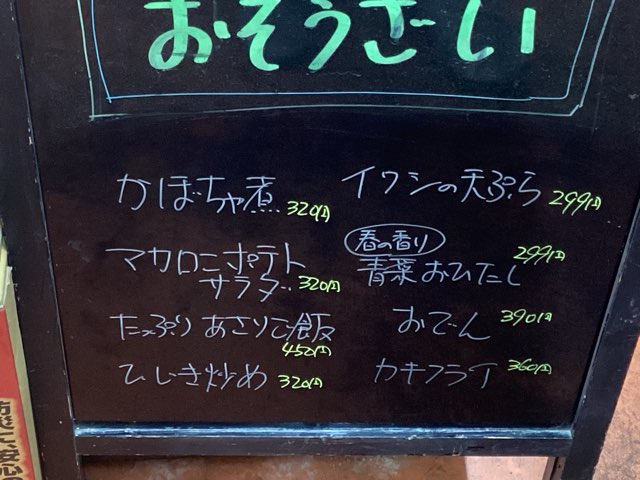 おそうざい
かぼちゃ煮 320円
マカロニポテト
サラダ 320円
たっぷりあさりご飯
450円
ひじき炒め 320円
イワシの天ぷら 299円
春の香り
青菜おひたし 299円
おでん 390円
カキフライ 360円